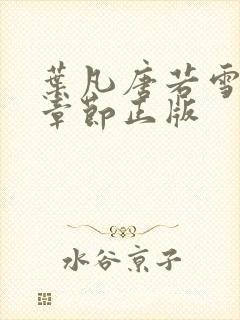 葉凡唐若雪
章節正版
水谷京子